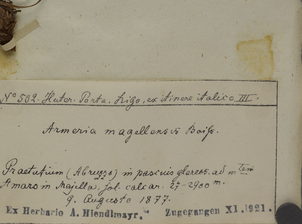 No 502. Huter. Porta. Rigo. ex itinere italico III.
Armeria magellensis Boiss.
Praetutium (Abruzzo) in pascuis glareos. ad mtem
Amaro in Majella, sol. calcar. 27-2900 m.
9. Augusto 1877.
Ex Herbario A. Hiendlmayr. Zugegangen XI. 1921.